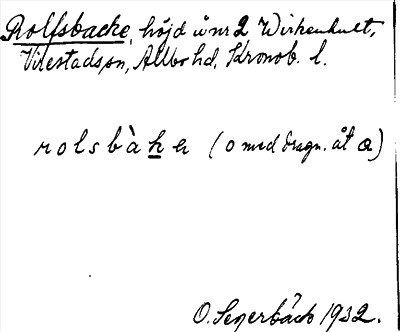 Rolfsbacke, höjd å nr 2 Wirkenhult,
Virestads sn, Allbo hd, Kronob. l.
rolsbàka (o med dragn. åt a)
O. Segerbäck 1932.